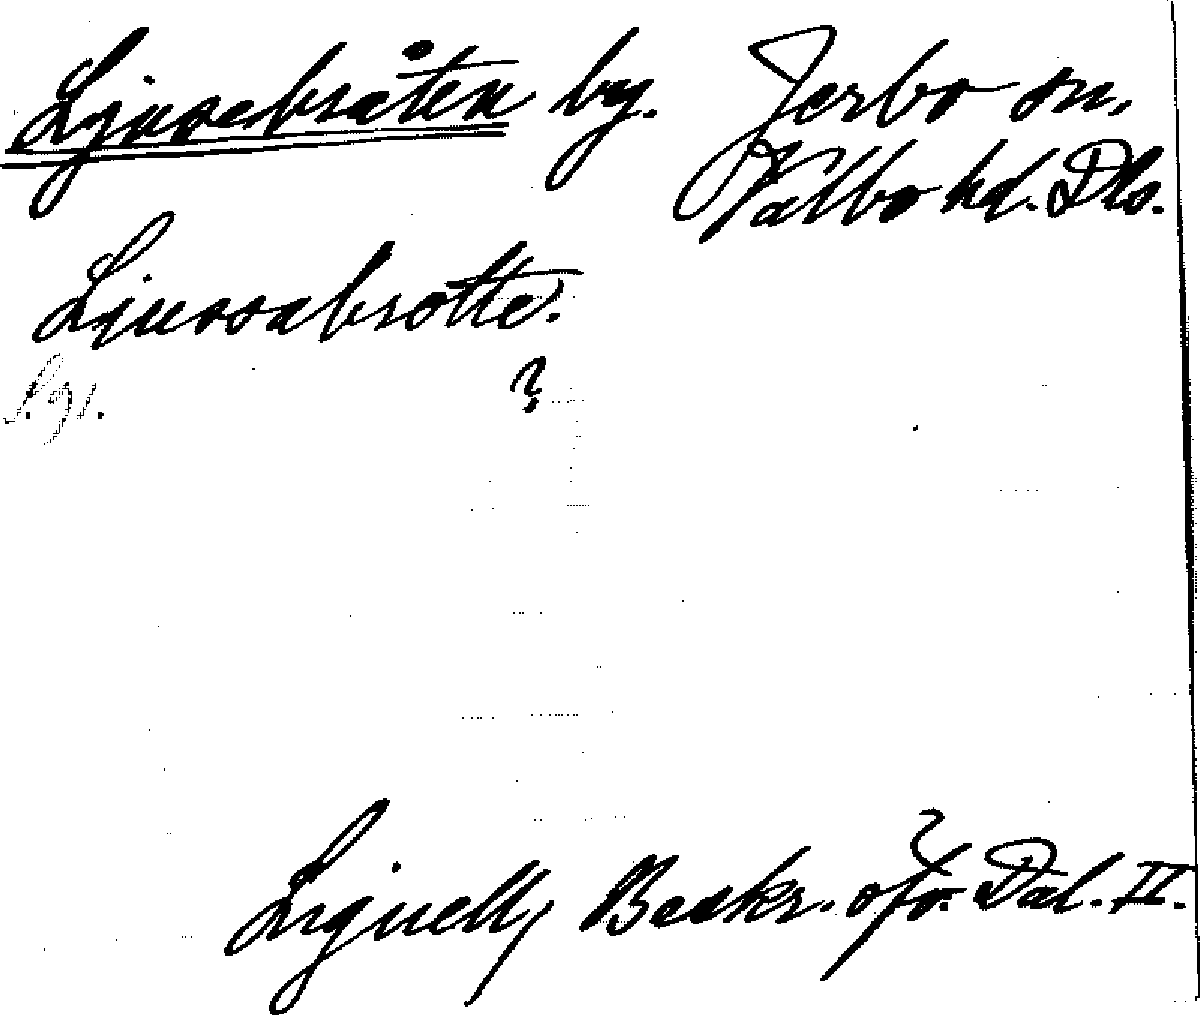 Ljusebråten by. Jerbo sn,
Valbo hd. Dls.
Ljussabrötte.
?
Lignell, Beskr. öfv. Dal. II.